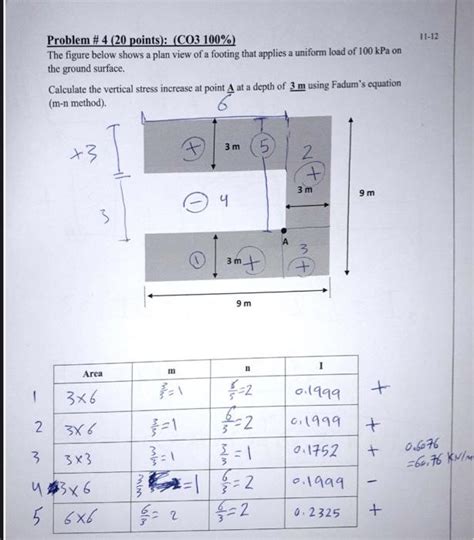 11-12
Problem # 4 (20 points): (CO3 100%)
The figure below shows a plan view of a footing that applies a uniform load of 100 kPa on
the ground surface.
Calculate the vertical stress increase at point A at a depth of 3 m using Fadum's equation
(m-n method).
6
+3
+
3 m
5
2
+
3 m
9 m
3
-
4
A
1
3 m
+
3
+
9 m
Area
m
n
I
1 3x6 3/3=1 6/3=2 0.1999 +
2 3x6 3/3=1 6/3=2 0.1999 +
3 3x3 3/3=1 3/3=1 0.1752 + 0.6076
4 3x6 3/3 =1 6/3=2 0.1999 - =60.76 KN/m
5 6x6 6/3=2 6/3=2 0.2325 +